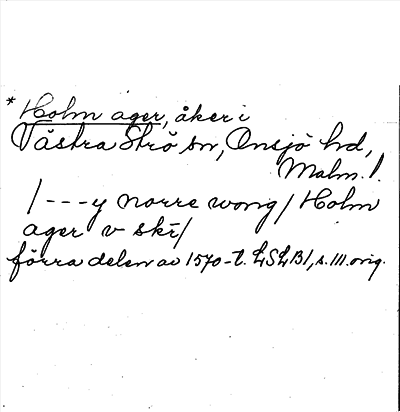 * Holm ager, åker i
Västra Strö sn, Onsjö hd,
Malm. l.
/---y norre wong/ Holm
ager v skř/
förra delen av 1570-t. LSLB1, s. 111. orig.